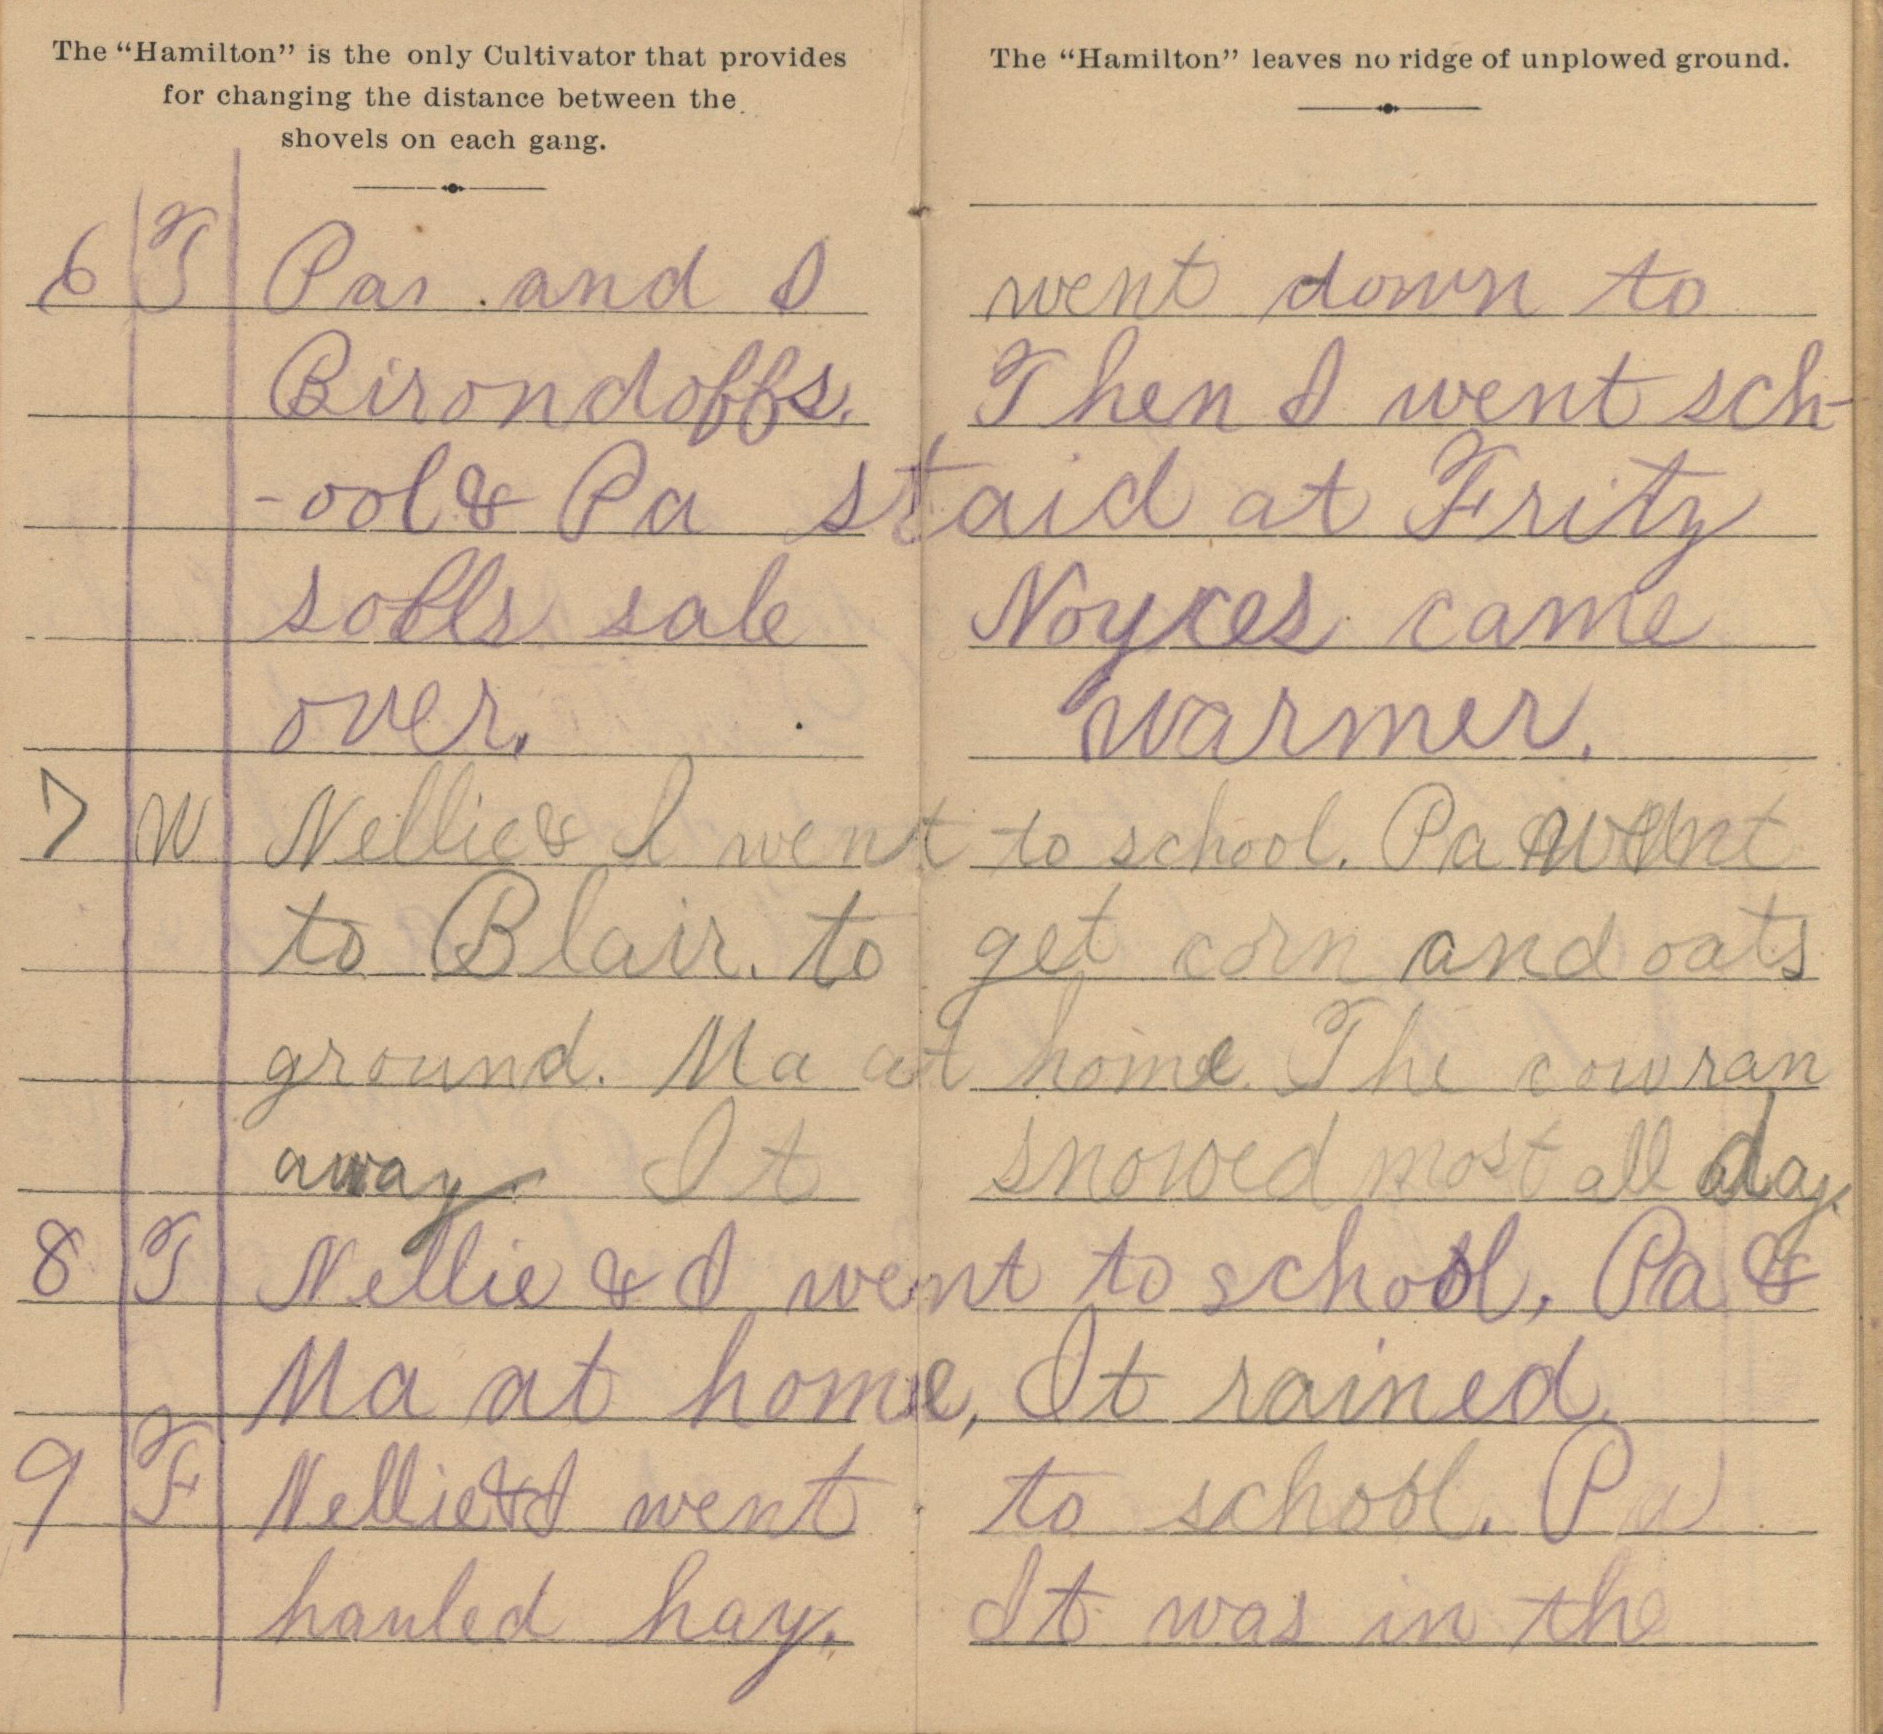 The “Hamilton” is the only Cultivator that provides
for changing the distance between the
shovels on each gang.
The “Hamilton” leaves no ridge of unplowed ground.
6 T Pa and I went down to
Birondoffs. Then I went sch-
-ool & Pa staid at Fritz
sale Noyces came
over. warmer.
7 W Nellie & I went to school. Pa went
to Blair. to get corn and oats
ground. Ma at home. The cow ran
away. It snowed most all day.
8 T Nellie & I went to school, Pa &
Ma at home, It rained.
9 F Nellie & I went to school. Pa
hauled hay. It was in the